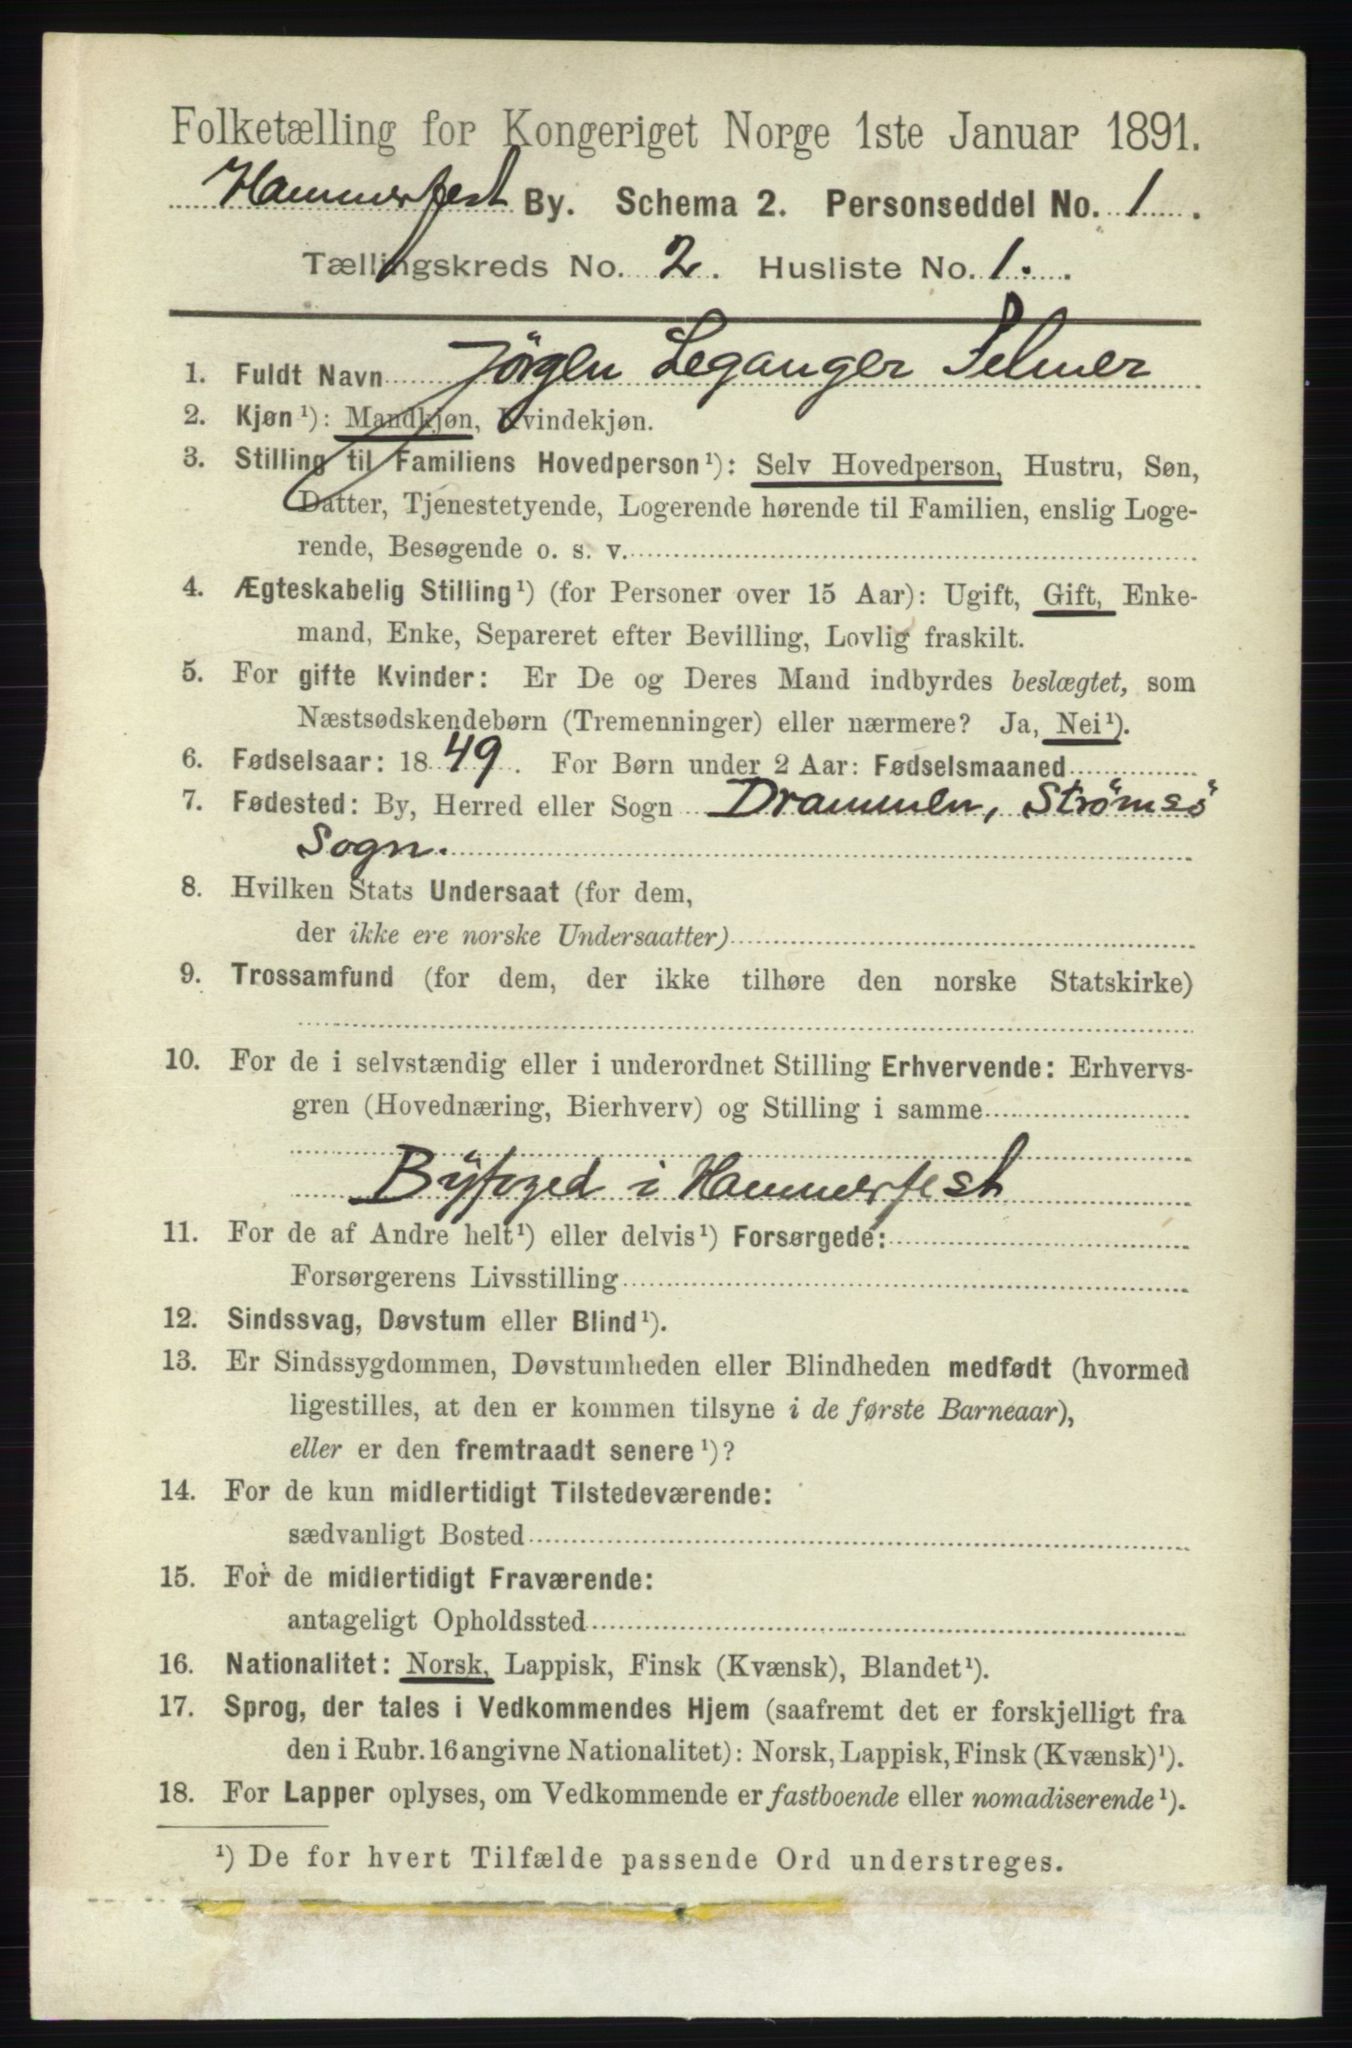 Folketælling for Kongeriget Norge 1ste Januar 1891.
Hammerfest By. Schema 2. Personseddel No. 1.
Tællingskreds No. 2. Husliste No. 1.
1. Fuldt Navn Jörgen Leganger Selmer
2. Kjøn ¹): Mandkjøn, Kvindekjøn.
3. Stilling til Familiens Hovedperson ¹): Selv Hovedperson, Hustru, Søn,
Datter, Tjenestetyende, Logerende hørende til Familien, enslig Loge-
rende, Besøgende o. s. v.
4. Ægteskabelig Stilling ¹) (for Personer over 15 Aar): Ugift, Gift, Enke-
mand, Enke, Separeret efter Bevilling, Lovlig fraskilt.
5. For gifte Kvinder: Er De og Deres Mand indbyrdes beslægtet, som
Næstsødskendebørn (Tremenninger) eller nærmere? Ja, Nei ¹).
6. Fødselsaar: 1849. For Børn under 2 Aar: Fødselsmaaned
7. Fødested: By, Herred eller Sogn Drammen, Strömsö
Sogn.
8. Hvilken Stats Undersaat (for dem,
der ikke ere norske Undersaatter)
9. Trossamfund (for dem, der ikke tilhøre den norske Statskirke)
10. For de i selvstændig eller i underordnet Stilling Erhvervende: Erhvervs-
gren (Hovednæring, Bierhverv) og Stilling i samme
Byfoged i Hammerfest
11. For de af Andre helt ¹) eller delvis ¹) Forsørgede:
Forsørgerens Livsstilling
12. Sindssvag, Døvstum eller Blind ¹).
13. Er Sindssygdommen, Døvstumheden eller Blindheden medfødt (hvormed
ligestilles, at den er kommen tilsyne i de første Barneaar),
eller er den fremtraadt senere ¹)?
14. For de kun midlertidigt Tilstedeværende:
sædvanligt Bosted
15. For de midlertidigt Fraværende:
antageligt Opholdssted
16. Nationalitet: Norsk, Lappisk, Finsk (Kvænsk), Blandet ¹).
17. Sprog, der tales i Vedkommendes Hjem (saafremt det er forskjelligt fra
den i Rubr. 16 angivne Nationalitet): Norsk, Lappisk, Finsk (Kvænsk) ¹).
18. For Lapper oplyses, om Vedkommende er fastboende eller nomadiserende ¹).
¹) De for hvert Tilfælde passende Ord understreges.